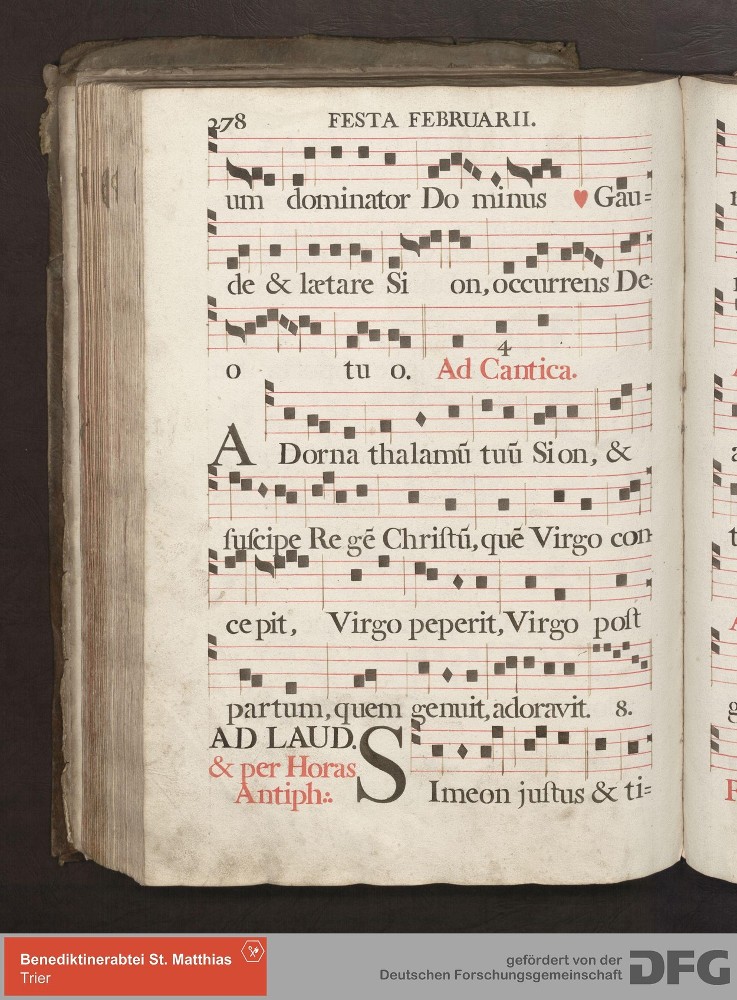 278 FESTA FEBRUARII.
um dominator Do minus ♥ Gau=
de & lætare Si on, occurrens De=
o tu o. Ad Cantica. 4
A Dorna thalamū tuū Sion, &
ſuſcipe Re gē Chriſtū, quē Virgo con-
ce pit, Virgo peperit, Virgo poſt
partum, quem genuit, adoravit. 8.
AD LAUD.
& per Horas
Antiph:.
S Imeon juſtus & ti=
Benediktinerabtei St. Matthias
Trier
gefördert von der
Deutschen Forschungsgemeinschaft
DFG